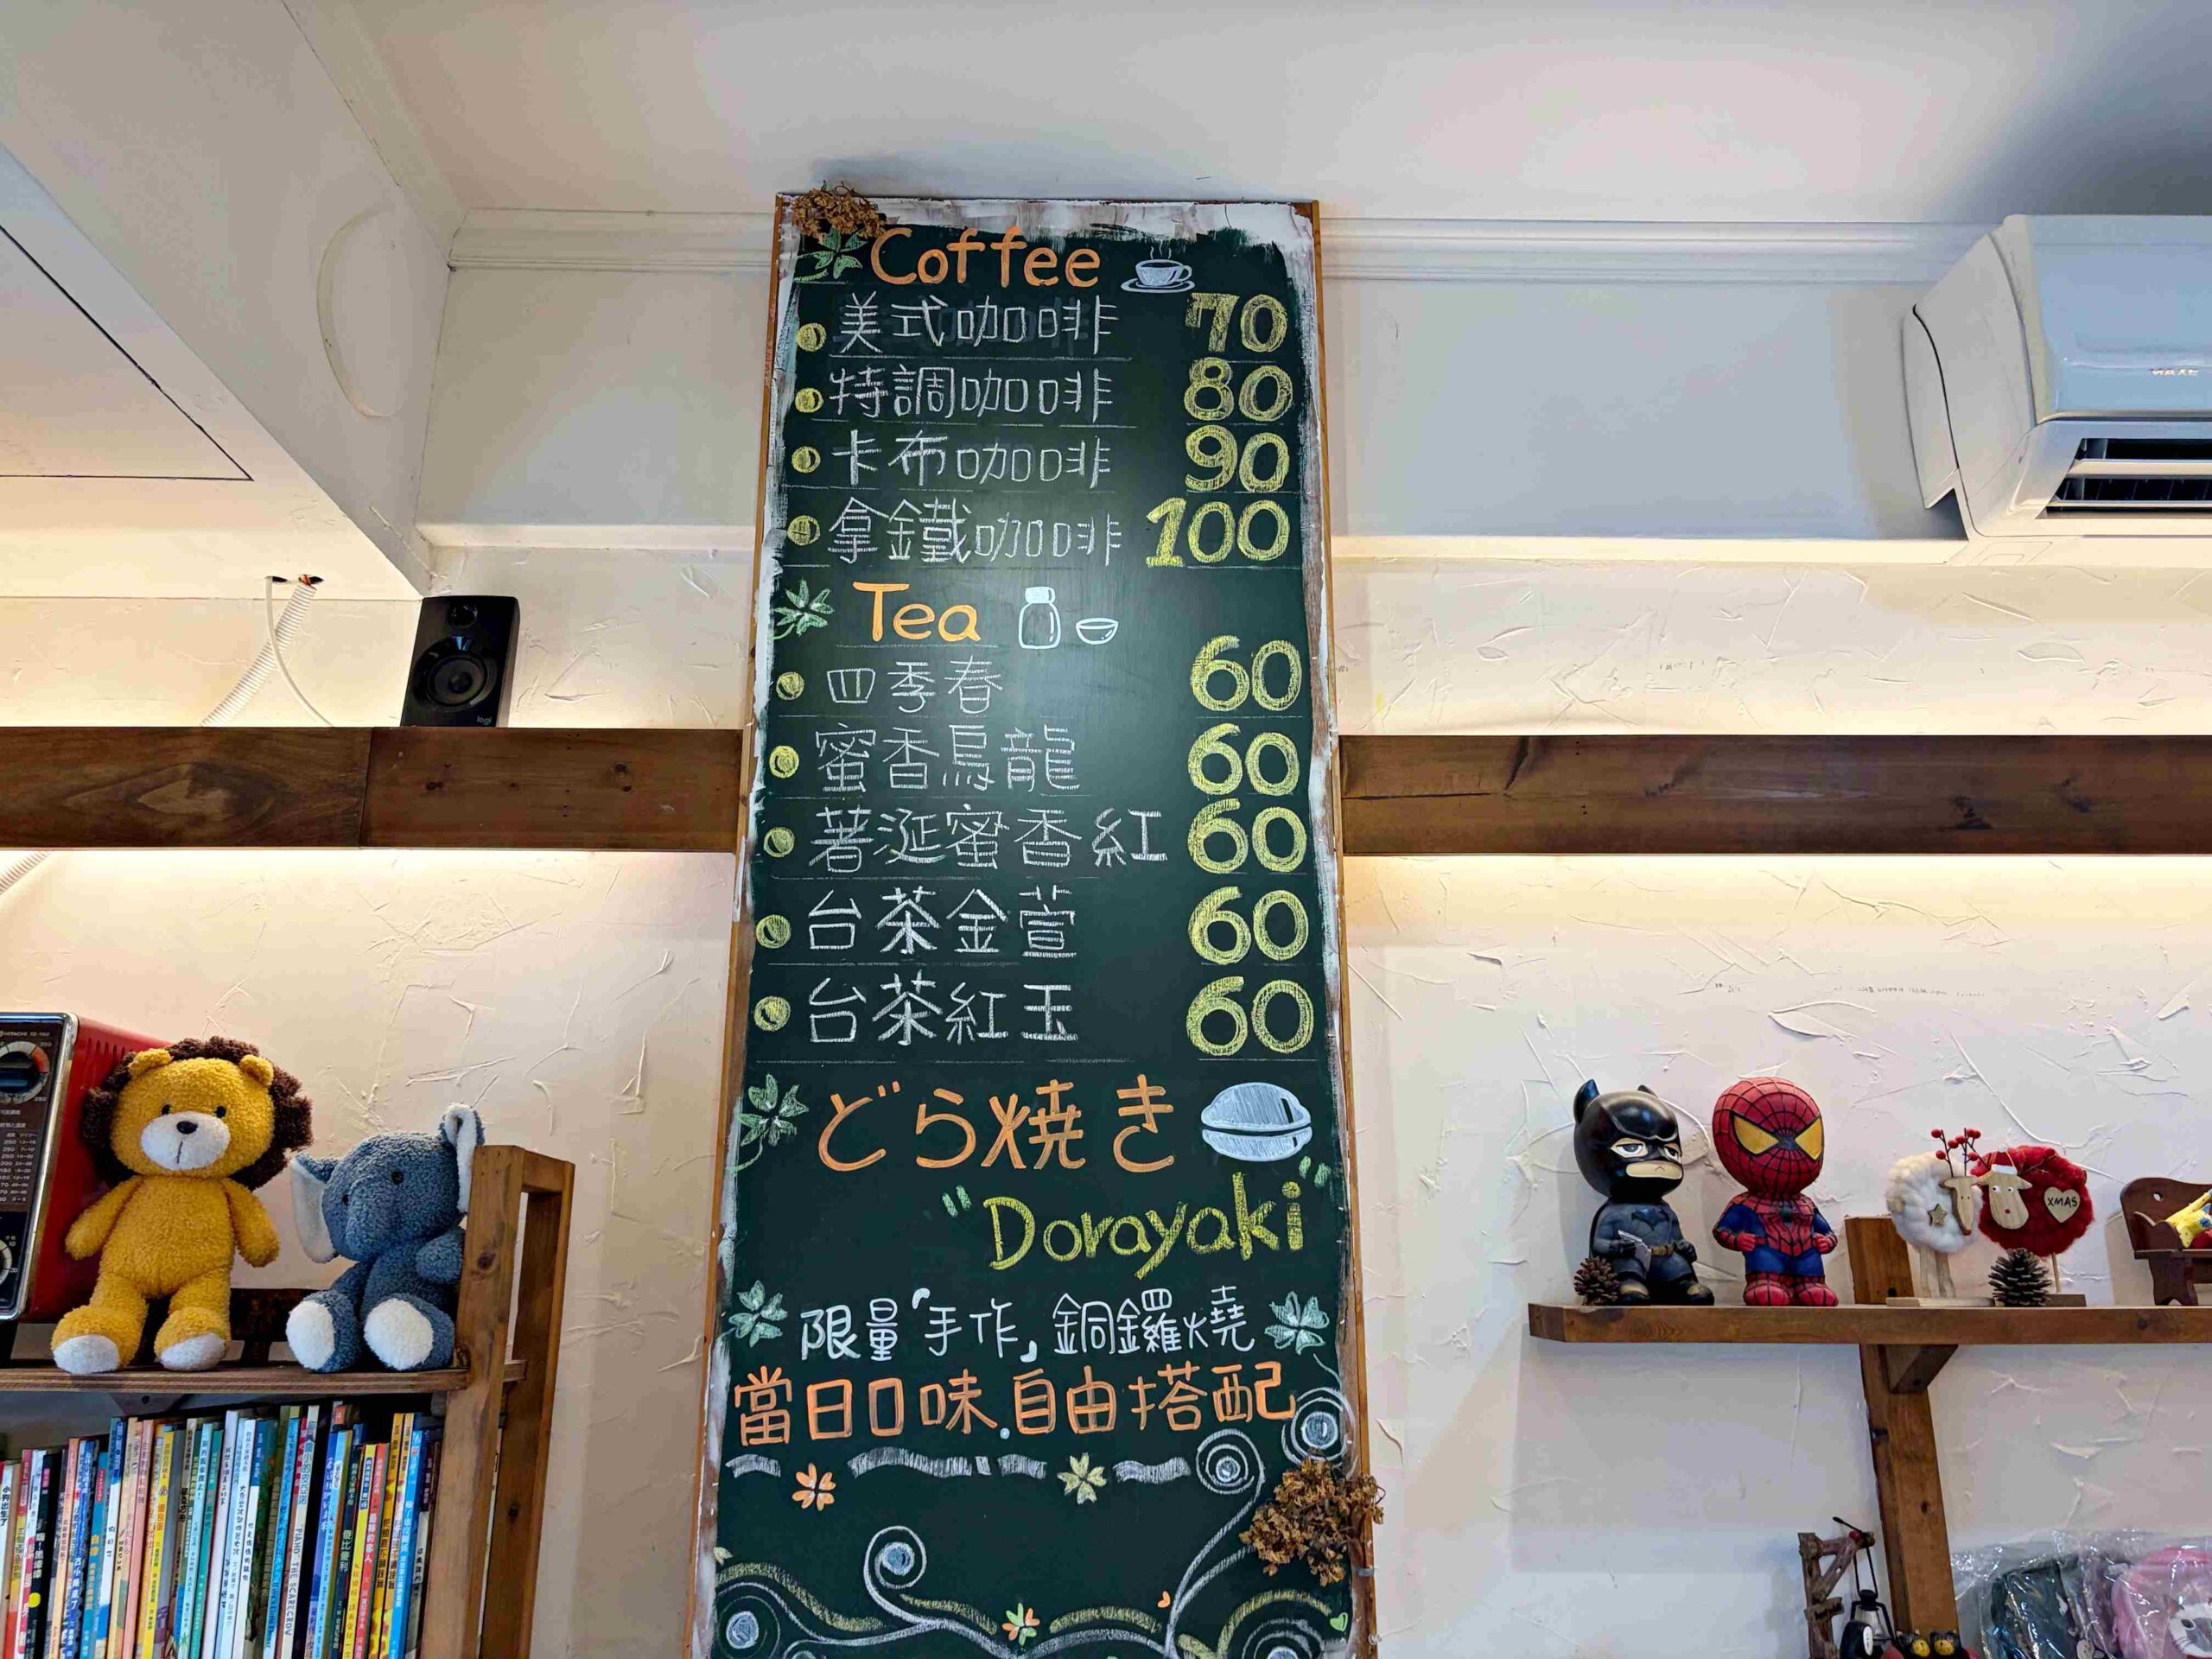 Coffee
美式咖啡 70
特調咖啡 80
卡布咖啡 90
拿鐵咖啡 100
Tea
四季春 60
蜜香烏龍 60
著涎蜜香紅 60
台茶金萱 60
台茶紅玉 60
どら焼き
"Dorayaki"
限量「手作」銅鑼燒
當日口味.自由搭配
logi
XMAS
PIANO THE SCARECROW